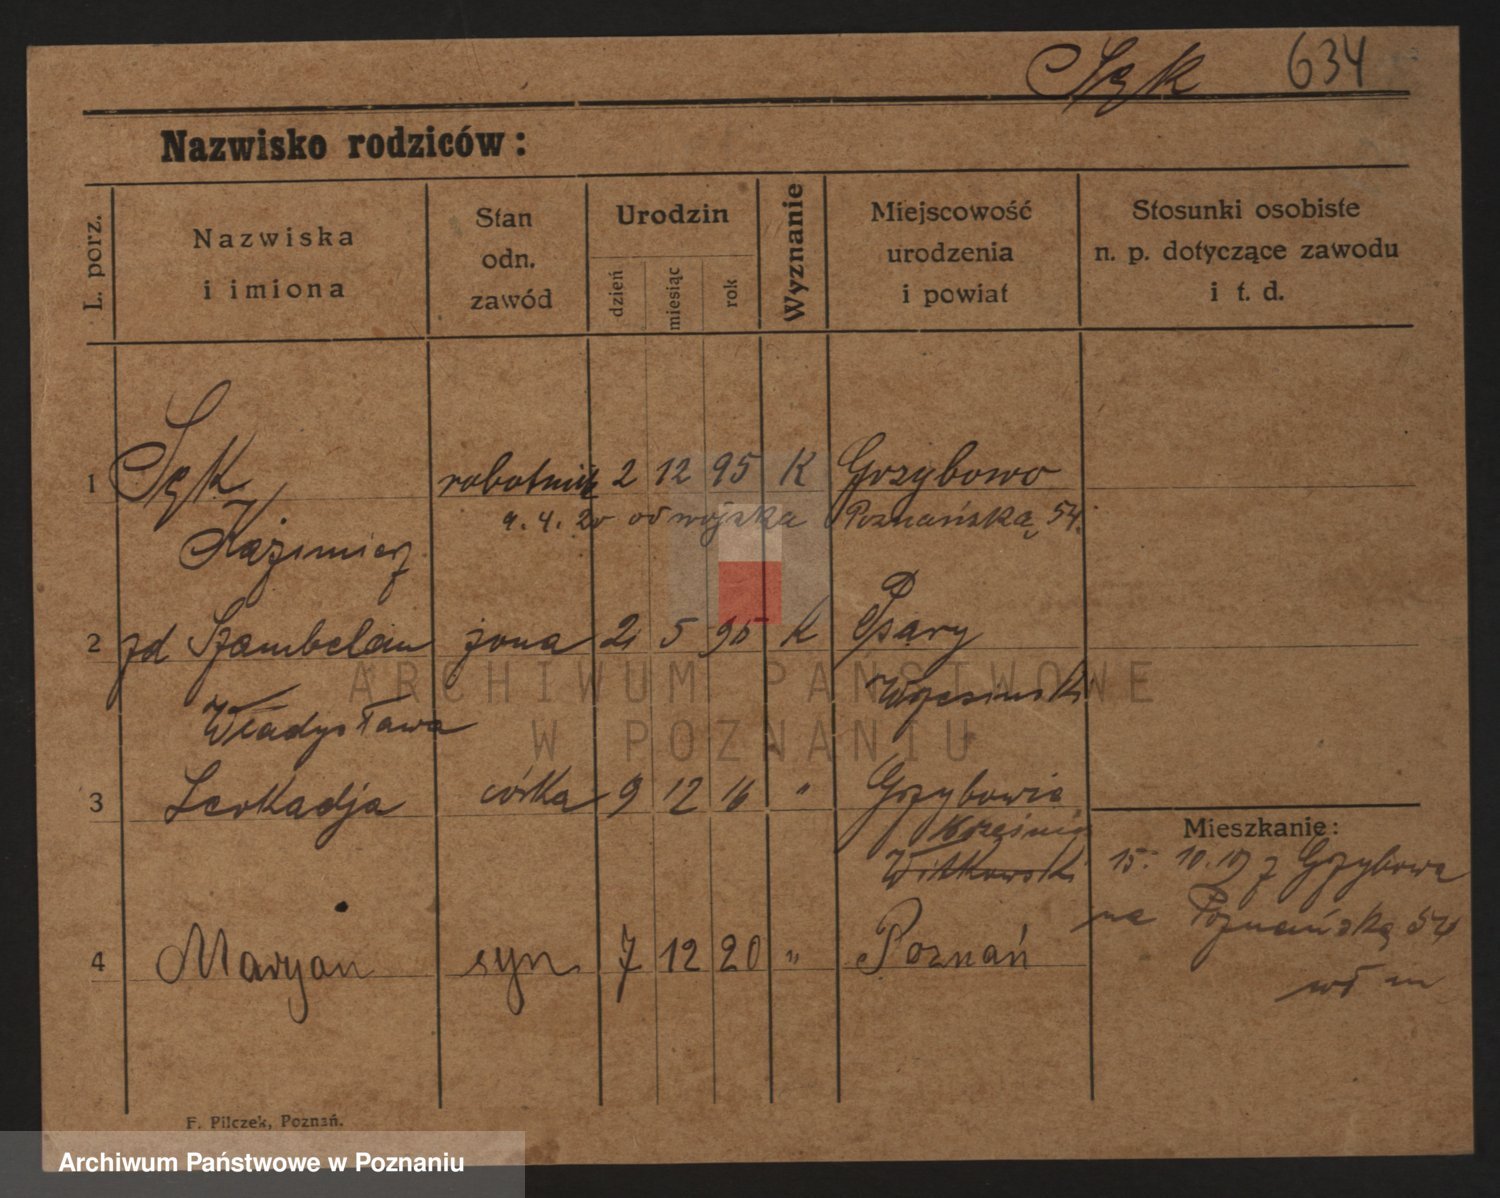 Sęk 634
Nazwisko rodziców:
L. porz.
Nazwiska
i imiona
Stan
odn.
zawód
Urodzin
dzień
miesiąc
rok
Wyznanie
Miejscowość
urodzenia
i powiat
Stosunki osobiste
n. p. dotyczące zawodu
i t. d.
1 Sęk robotnik 2 12 95 K Grzybowo
4. 20 od wojska Poznańska 54.
Kazimierz
2 zd Szambelan żona 2 5 95 K Psary
Wrzesiński
Władysława
3 Leokadja córka 9 12 16 " Grzybowie
Września
Witkowski
Mieszkanie:
15. 10. 19 z Grzybowa
na Poznańską 54
4 Maryan syn 7 12 20 " Poznań
F. Pilczek, Poznań.
ARCHIWUM PAŃSTWOWE
W POZNANIU
Archiwum Państwowe w Poznaniu